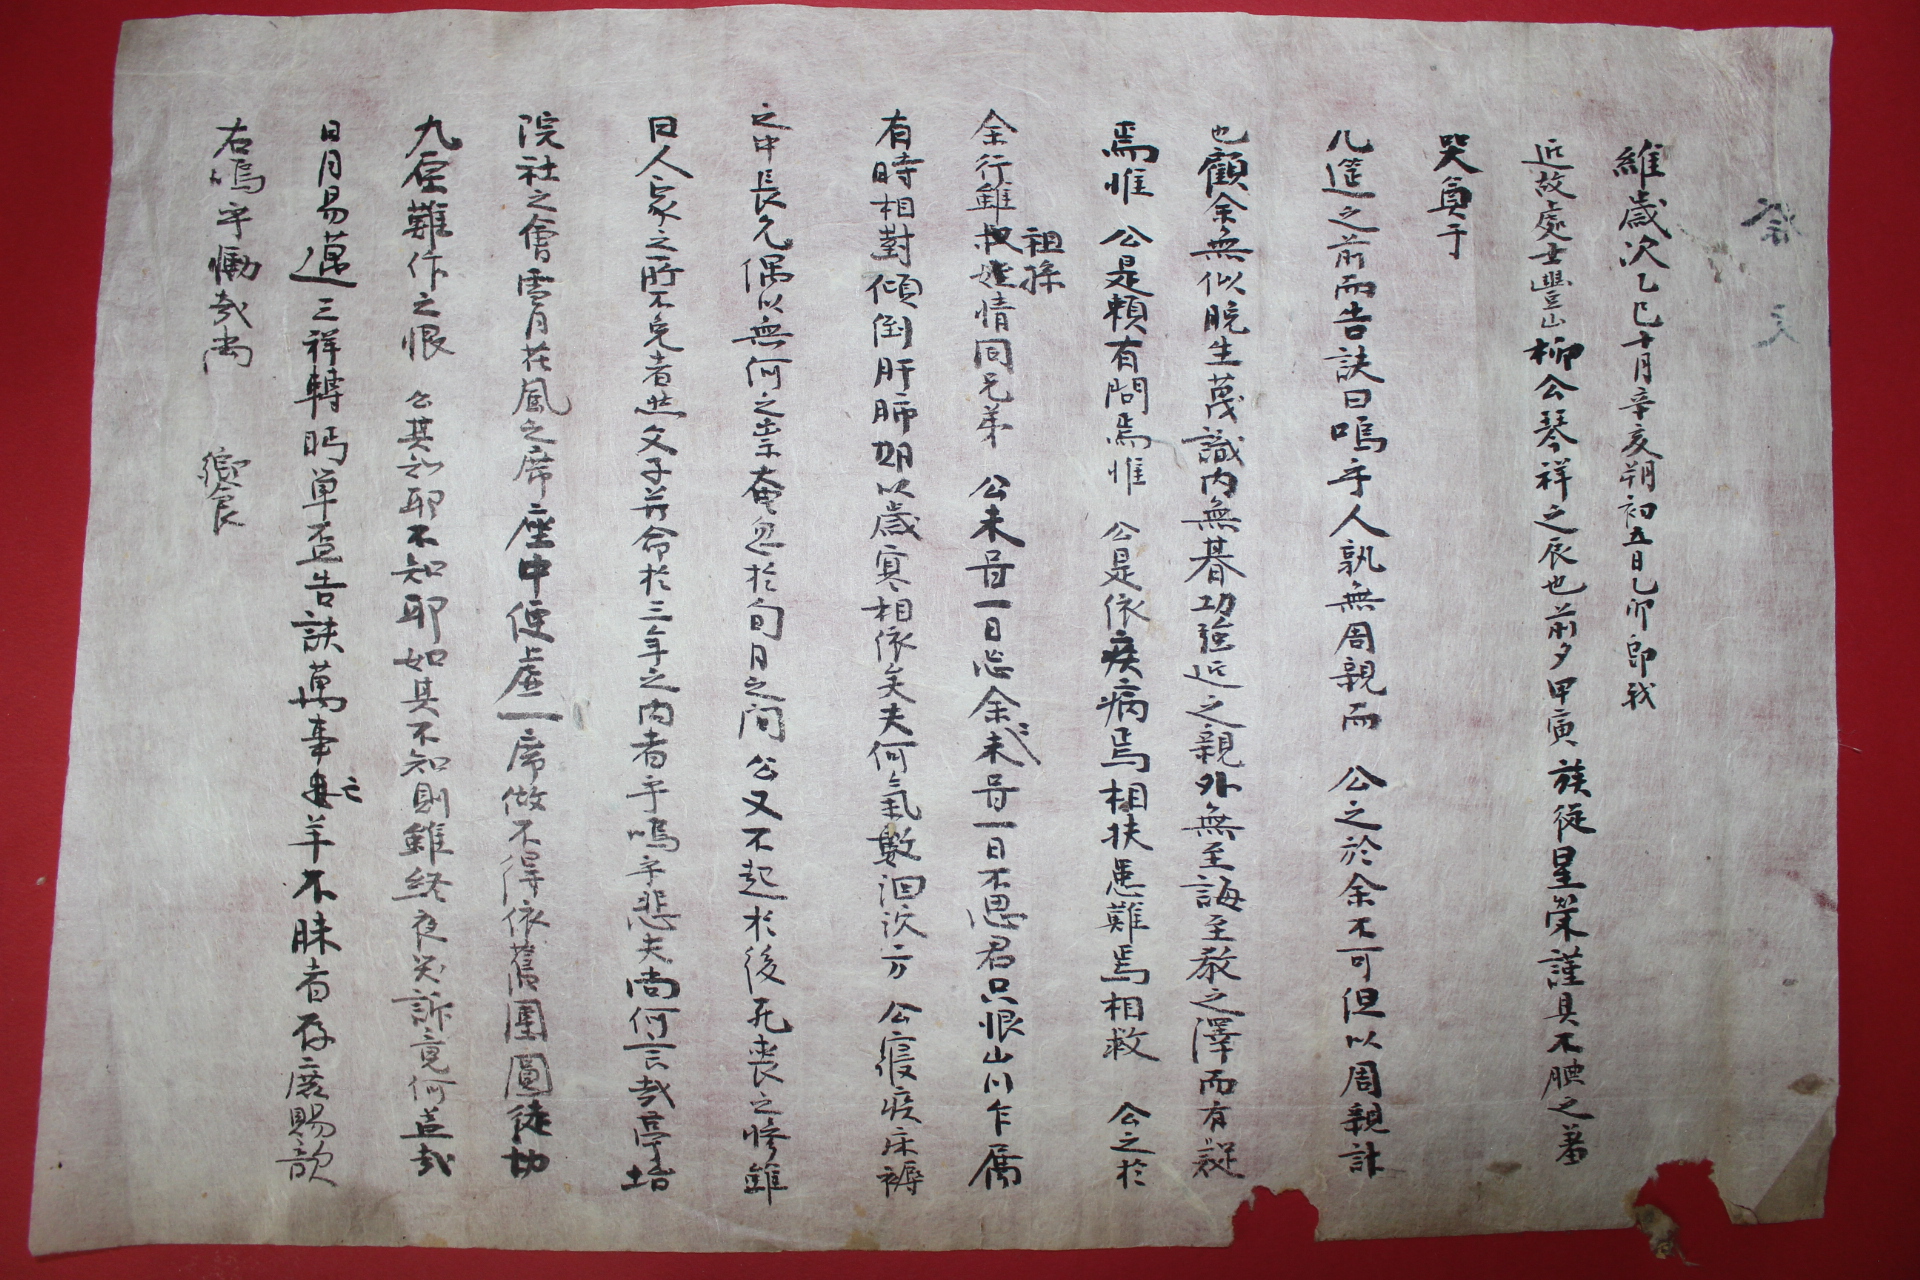 祭文
維歲次乙巳十月辛亥朔初五日乙卯郎我
近故處士豐山柳公琴祥之辰也前夕甲寅族從星榮謹具不腆之羞
哭奠于
几筵之前而告訣曰嗚乎人孰無周親而 公之於余不可但以周親計
也顧余無似晩生蔑識內無朞功強近之親外無至誨至教之澤而有疑
焉惟 公是賴有問焉惟 公是依疾病焉相扶患難焉相救 公之於
余行雖祖孫情同兄弟 公未甞一日忘余余未甞一日不思君只恨山川乍厲
有時相對傾倒肝肺期以歲寒相依矣夫何氣數洄沕方 公寢疾床褥
之中長允偶以無何之祟奄忽於旬月之间 公又不起於後死喪之慘雖
曰人家之所不免者豈父子并命於三年之內者乎嗚乎悲夫尚何言哉亭坮
院社之會雪月花風之席座中便虛一席做不得依舊團圓徒切
九原難作之恨 公其知耶不知耶如其不知則雖終夜哭訴竟何益哉
日月易邁三祥轉眄單盃告訣萬事亡羊不昧者存庶賜歆
右嗚乎慟哉尚 饗